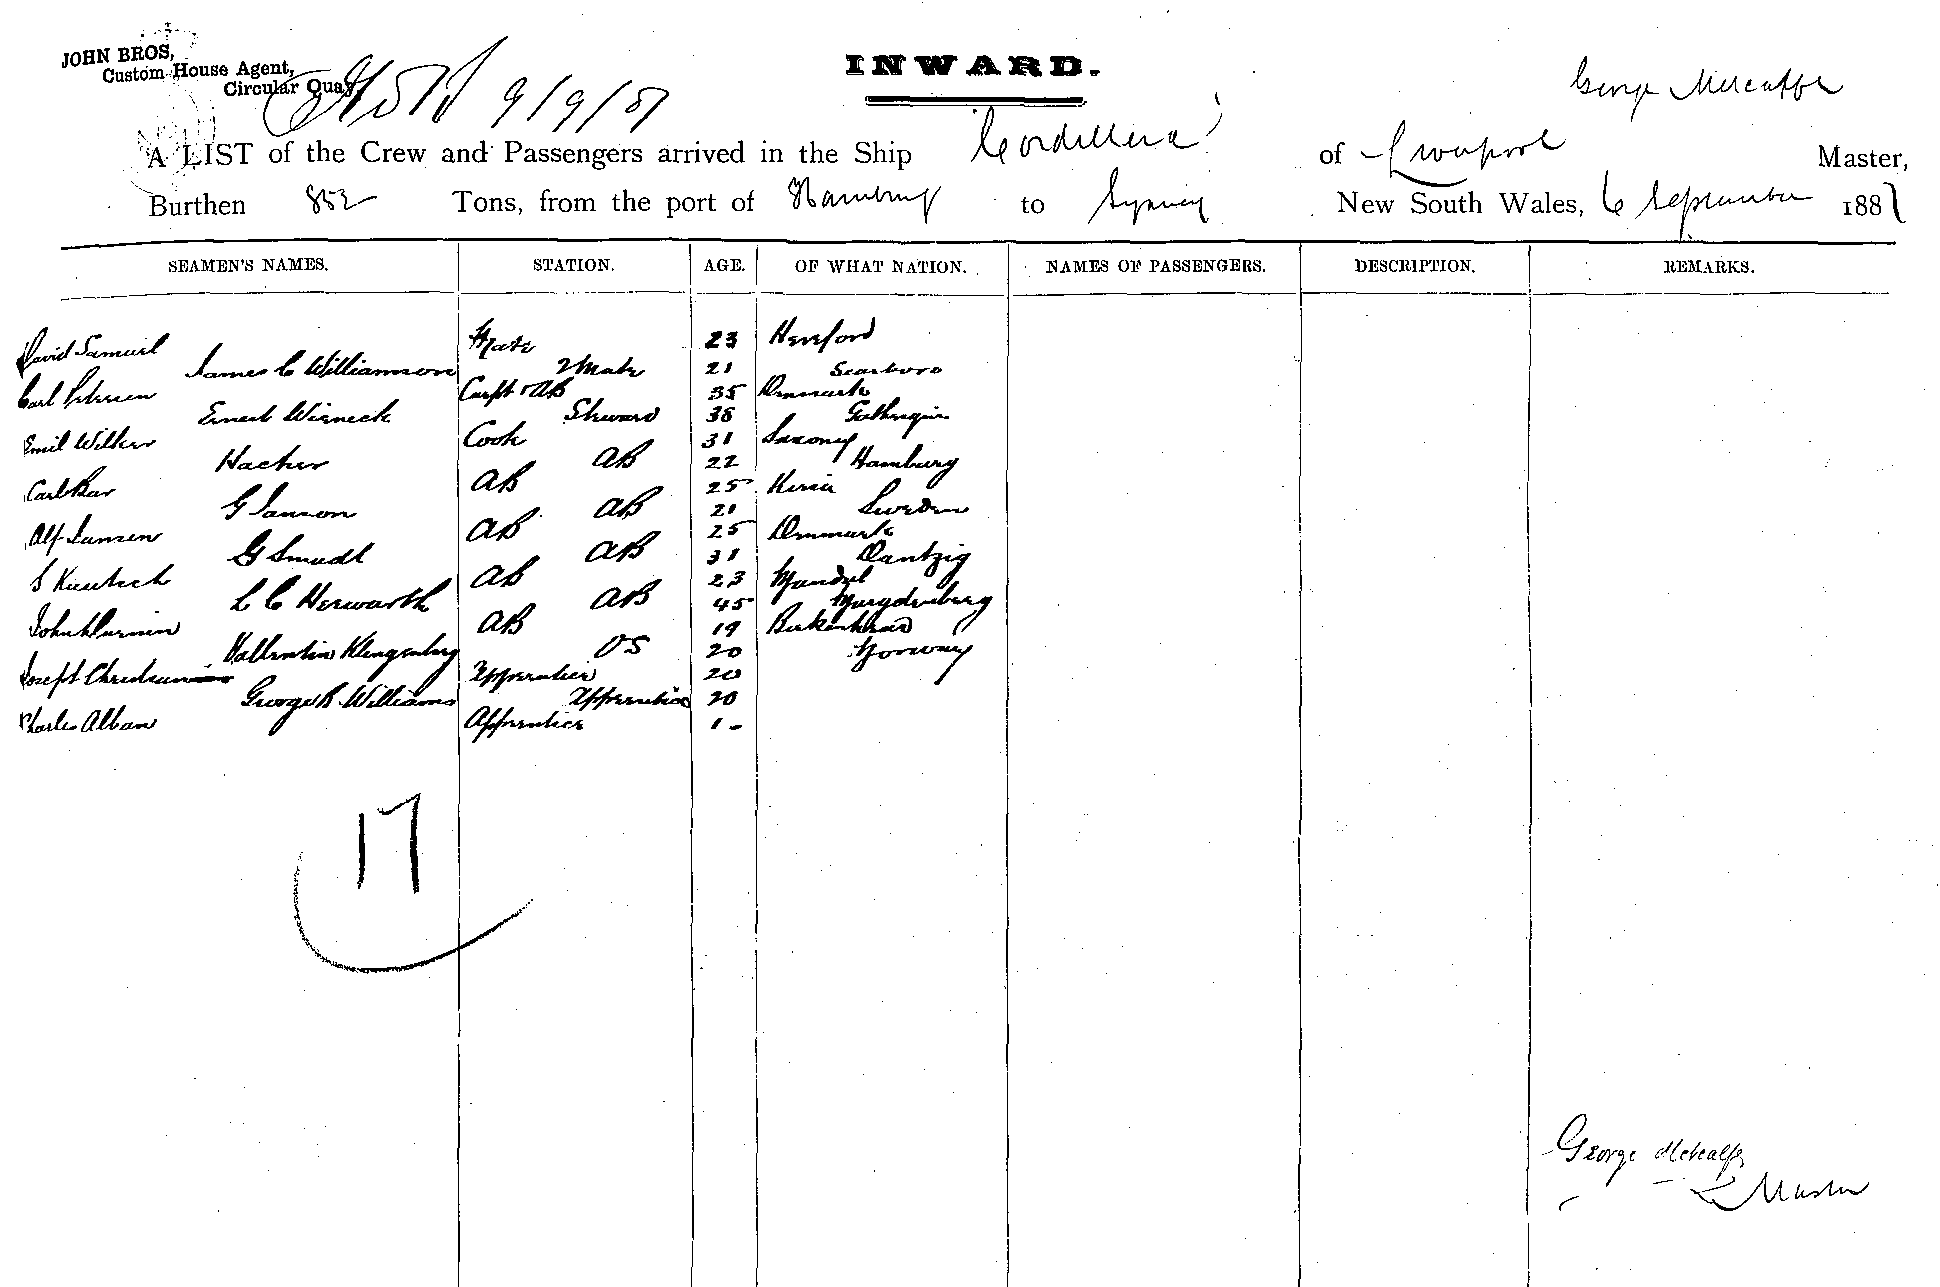 JOHN BROS,
Custom House Agent,
Circular Quay,
9/9/87
INWARD.
George Metcalfe
A LIST of the Crew and Passengers arrived in the Ship Cordillera of Liverpool Master,
Burthen 852 Tons, from the port of Hamburg to Sydney New South Wales, 6 September 1887
SEAMEN'S NAMES. STATION. AGE. OF WHAT NATION. NAMES OF PASSENGERS. DESCRIPTION. REMARKS.
David Samuel Mate 23 Hereford
James C Williamson 2 Mate 21 Scarboro
Carl Petersen Carpt & AB 35 Denmark
Ernest Wierneck Steward 38
Emil Wilker Cook 31 Saxony
Hacker AB 22 Hamburg
Carl Bar AB 25
G Janson AB 21 Sweden
Alf Jansen AB 25 Denmark
G Smudt AB 31 Dantzig
S AB 23 Mandal
L C Herwarth AB 45
John AB 19 Birkenhead
Vallentin Klingenberg OS 20 Norway
Joseph Apprentice 20
George R. Williams Apprentice 20
Charles Alban Apprentice 1
17
George Metcalfe
Master